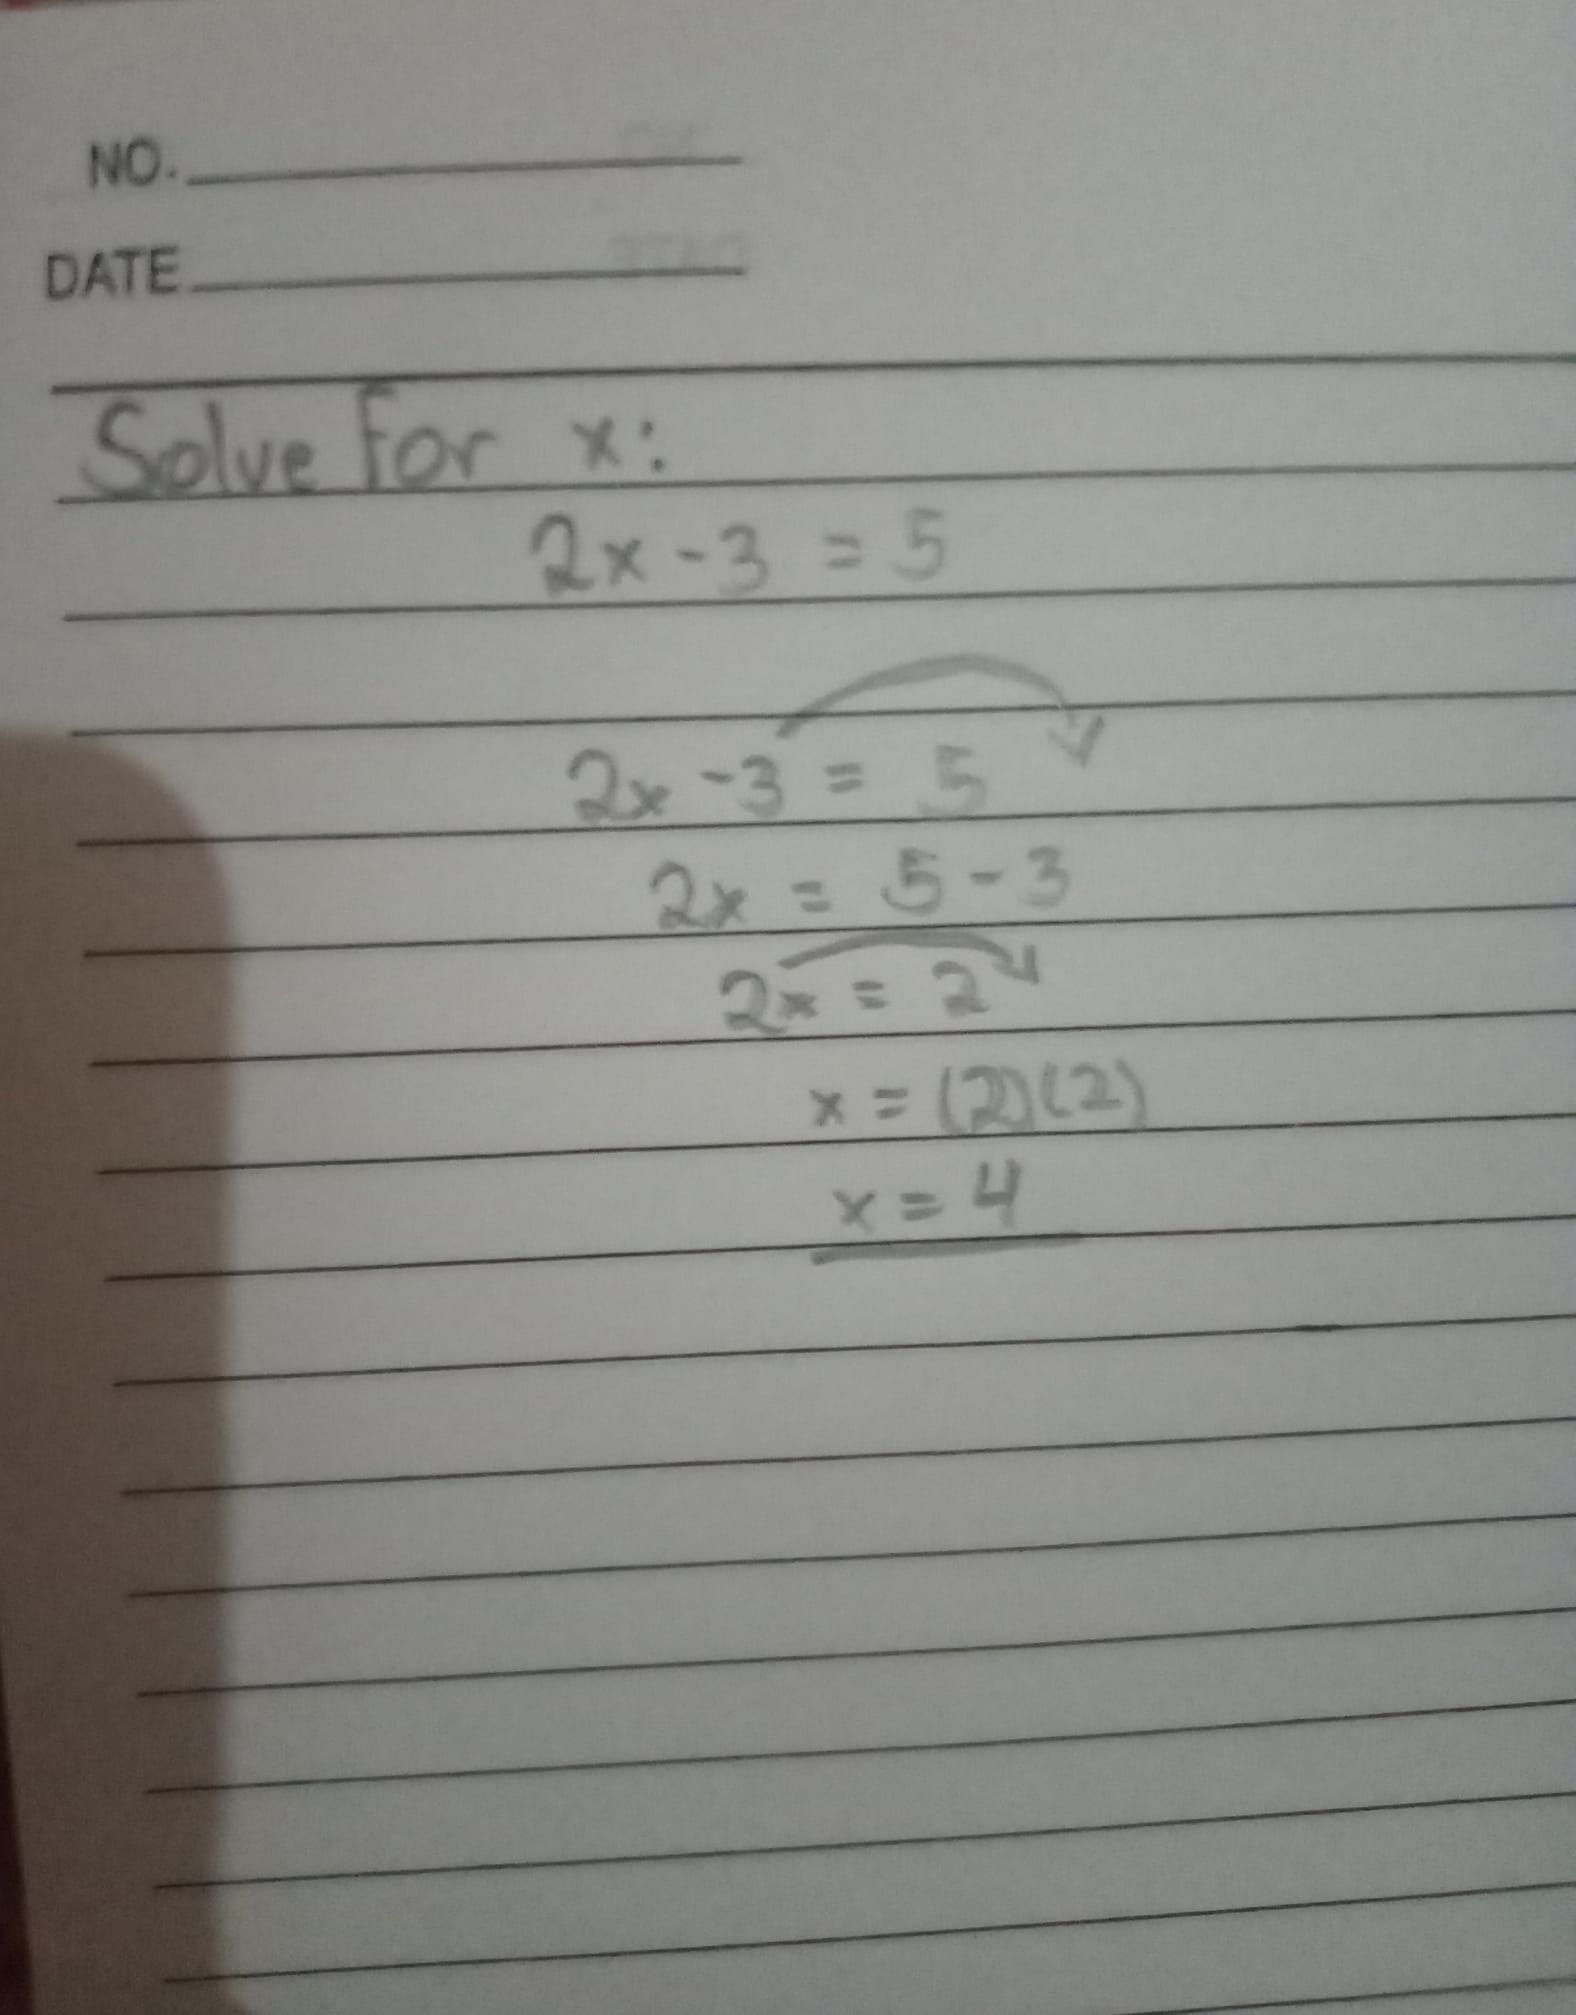 NO.
DATE
Solve For x:
2x - 3 = 5
2x - 3 = 5
2x = 5 - 3
2x = 2
x = (2)(2)
x = 4